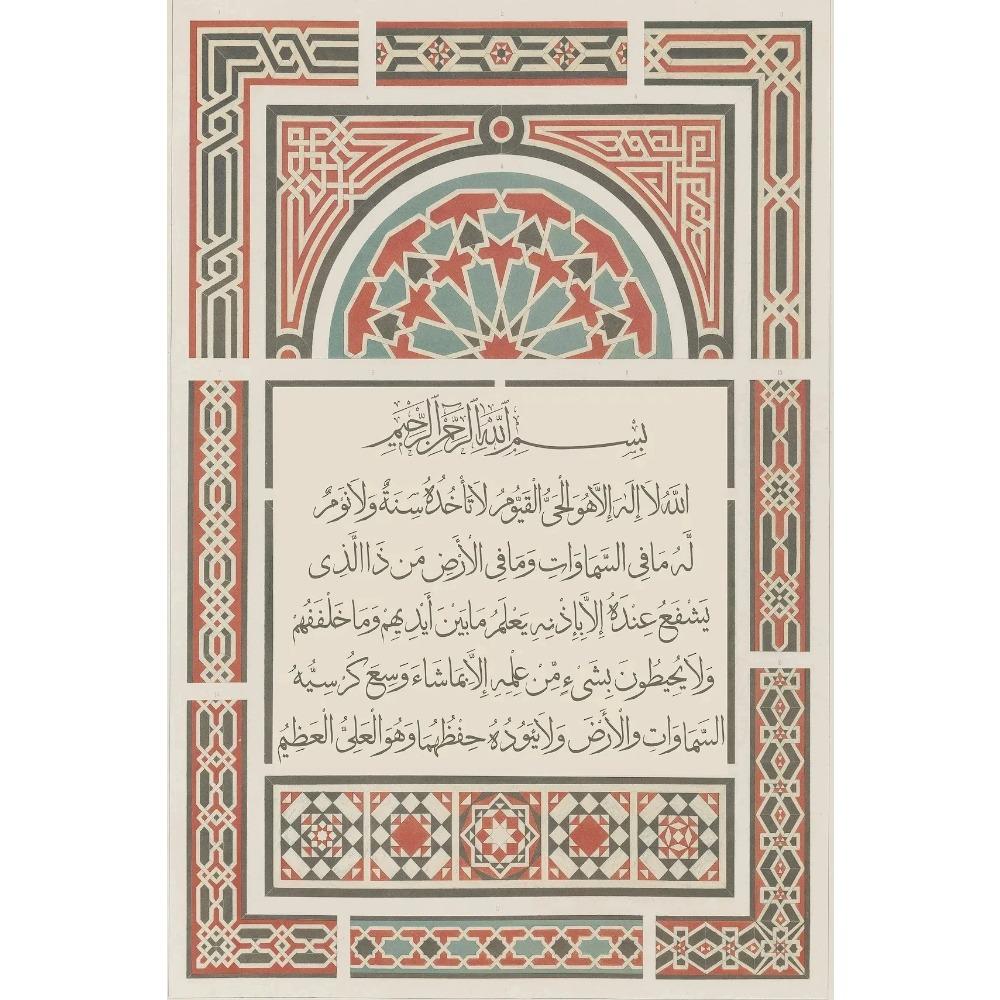 بِسْمِ اللَّهِ الرَّحْمَنِ الرَّحِيمِ
اللَّهُ لَا إِلَهَ إِلَّا هُوَ الْحَيُّ الْقَيُّومُ لَا تَأْخُذُهُ سِنَةٌ وَلَا نَوْمٌ
لَهُ مَا فِي السَّمَاوَاتِ وَمَا فِي الْأَرْضِ مَن ذَا الَّذِي
يَشْفَعُ عِنْدَهُ إِلَّا بِإِذْنِهِ يَعْلَمُ مَا بَيْنَ أَيْدِيهِمْ وَمَا خَلْفَفَهُمْ
وَلَا يُحِيطُونَ بِشَيْءٍ مِّنْ عِلْمِهِ إِلَّا بِمَا شَاءَ وَسِعَ كُرْسِيُّهُ
السَّمَاوَاتِ وَالْأَرْضَ وَلَا يَئُودُهُ حِفْظُهُمَا وَهُوَ الْعَلِيُّ الْعَظِيمُ